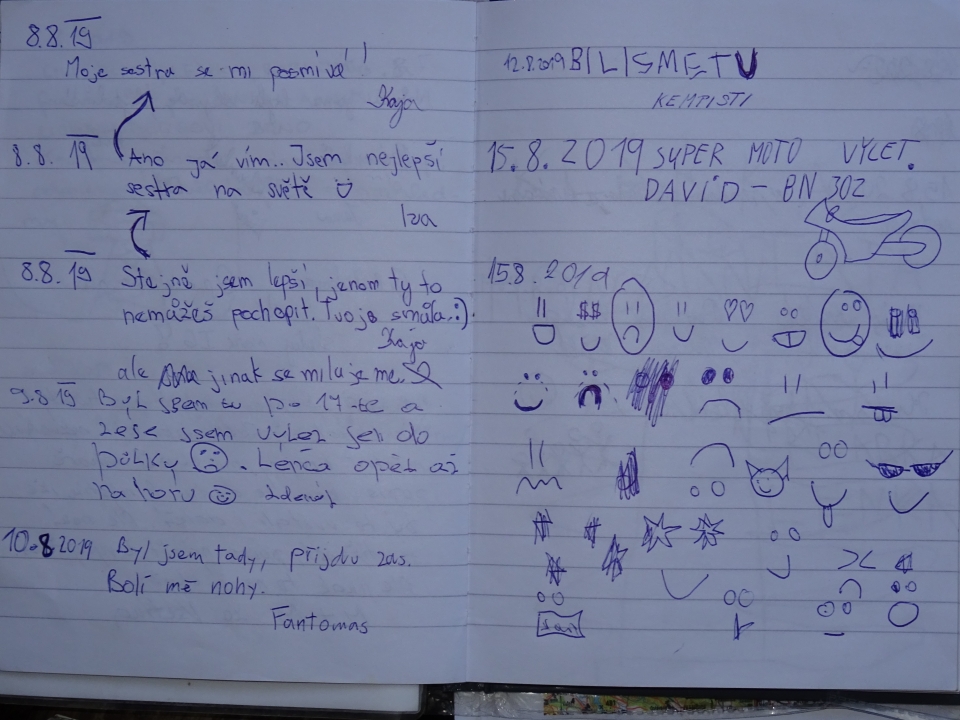 8.8.19
Moje sestra se mi posmívá!
Kája
8.8. 19 Ano já vím.. Jsem nejlepší
sestra na světě
Iva
8.8.19 Stejně jsem lepší, jenom ty to
nemůžeš pochopit. Tvoje smůla. :)
Kája
ale jinak se milujeme.
9.8 19 Byl jsem tu po 17-té a
zese jsem vylez jen do
půlky . Lenča opět až
nahoru Zdeněk
10.8 2019 Byl jsem tady, přijdu zas.
Bolí mě nohy.
Fantomas
12.8.2019 BILI SME TU
KEMPISTI
15.8.2019 SUPER MOTO VÝLET.
DAVID - BN 302
15.8.2019